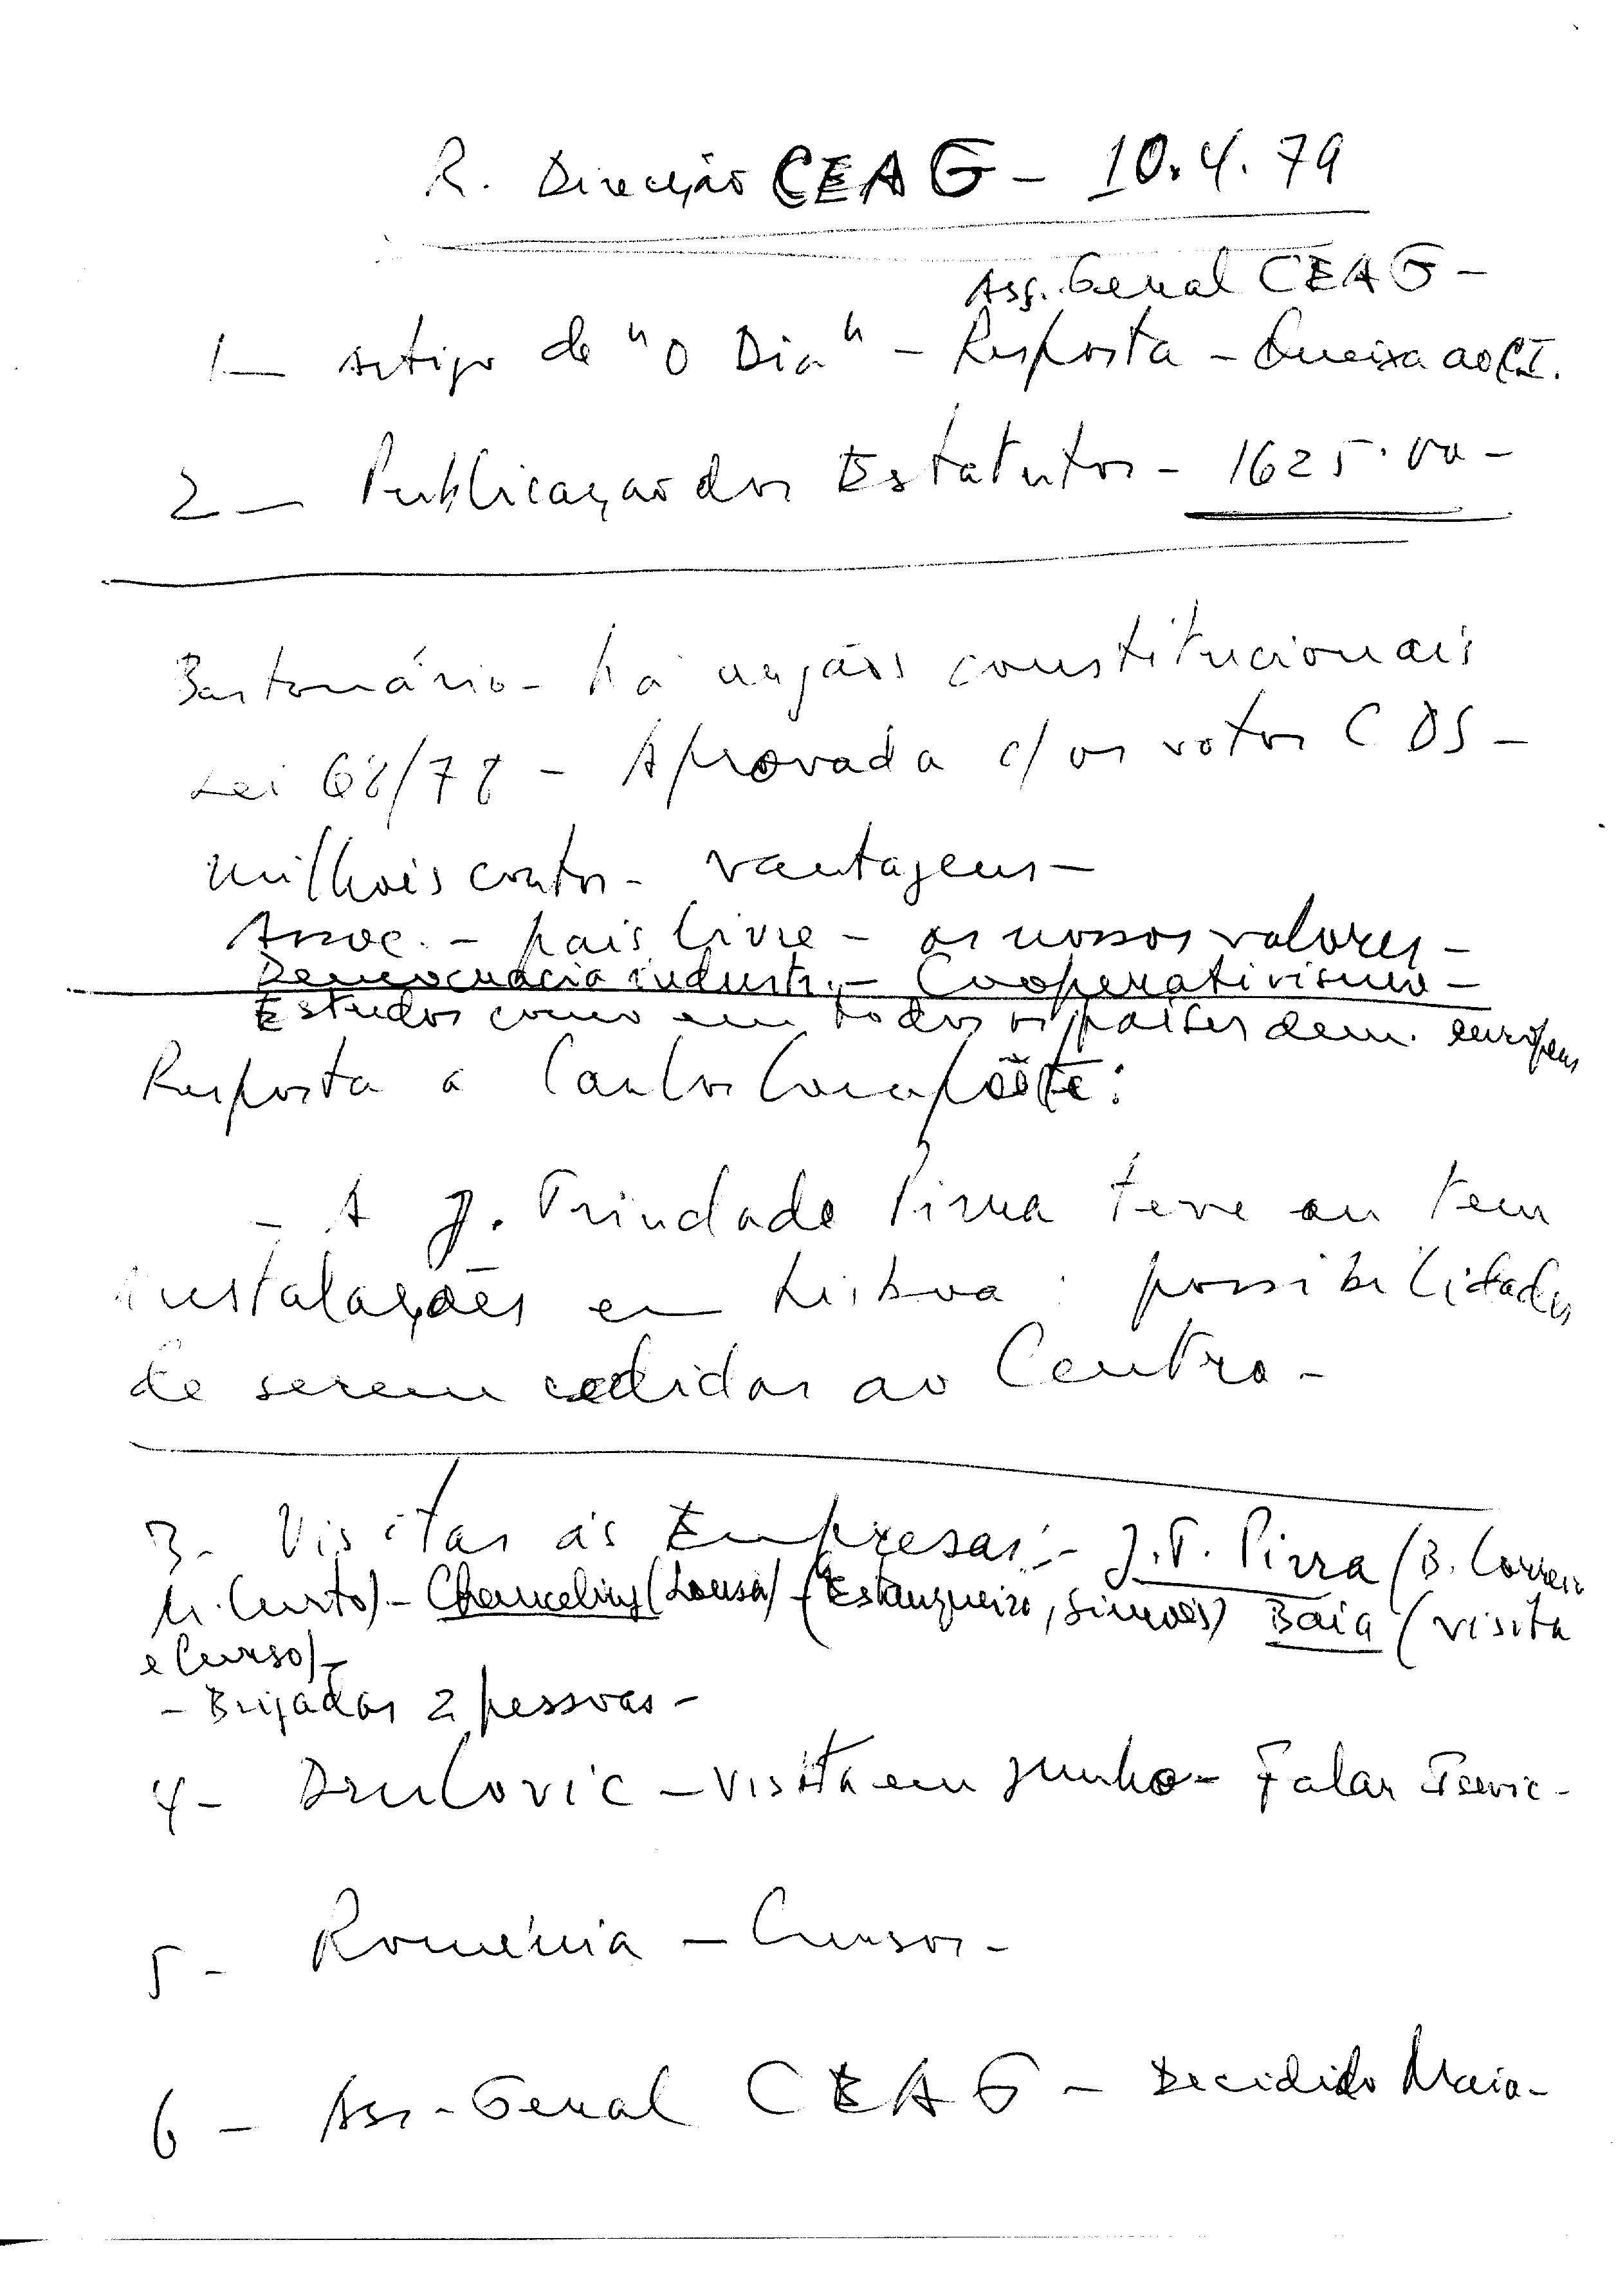 R. Direcção CEAG - 10.4.79
Ass. Geral CEAG -
1 - Artigo de "O Dia" - Resposta - Queixa ao C.I.
2 - Publicação dos Estatutos - 1625.00 -
Bastonário - há órgãos constitucionais
Lei 68/78 - Aprovada c/ os votos CDS -
milhões contos - vantagens -
Assoc. - país livre - os nossos valores -
Democracia industr. - Cooperativismo -
Estudos como em todos os países dem. europeus
Resposta a Carlos
- A J. Trindade Pirra teve ou tem
instalações em Lisboa : possibilidades
de serem cedidas ao Centro -
3 - Visitas às Empresas: - J.T. Pirra (B. Correia
M. Curto) - (Lousã) - (Estanqueiro, Simões) Baía (visita
e Curso) -
- Brigadas 2 pessoas -
4 - Drulovic - Visita em Junho - Falar
5 - Roménia - Cursos -
6 - Ass. Geral CEAG - Decidido Maio -